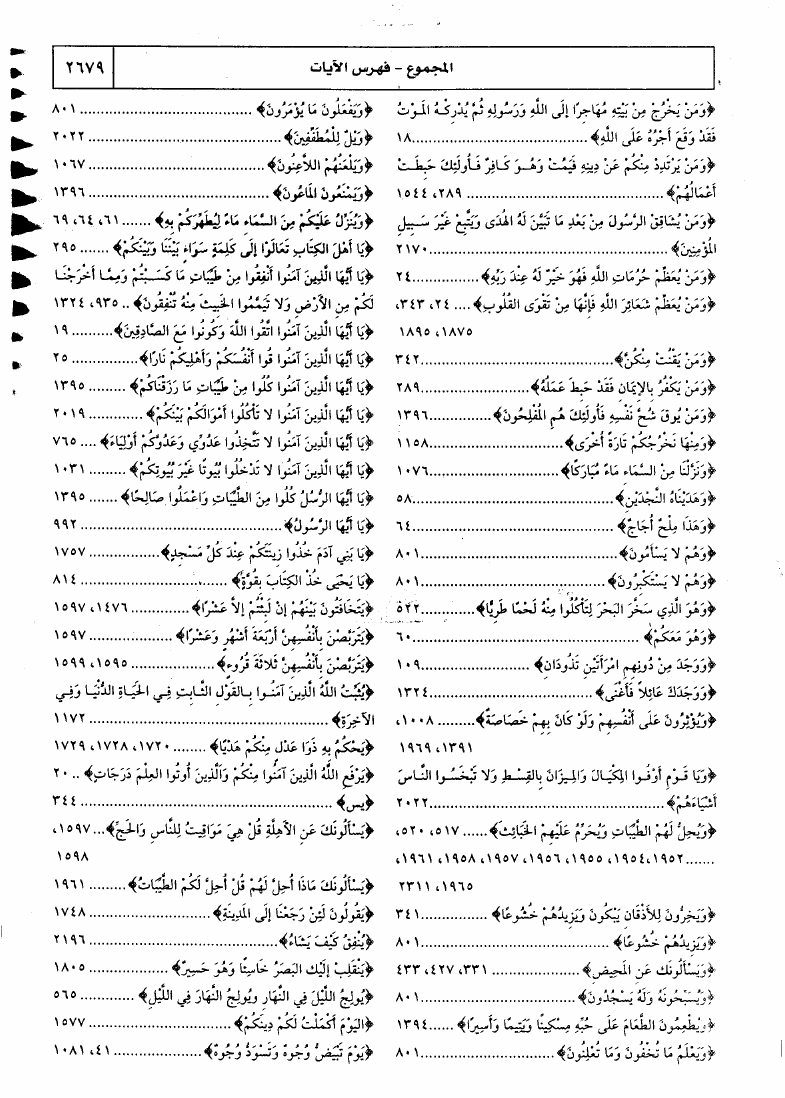 المجموع – فهرس الآيات
٢٦٧٩
﴿وَمَنْ يَخْرُجْ مِنْ بَيْتِهِ مُهَاجِرًا إِلَى اللَّهِ وَرَسُولِهِ ثُمَّ يُدْرِكْهُ المَوْتُ
فَقَدْ وَقَعَ أَجْرُهُ عَلَى اللَّهِ﴾ ..... ١٨
﴿وَمَنْ يَرْتَدِدْ مِنْكُمْ عَنْ دِينِهِ فَيَمُتْ وَهُوَ كَافِرٌ فَأُولَئِكَ حَبِطَتْ
أَعْمَالُهُمْ﴾ ..... ٢٨٩، ١٥٤٤
﴿وَمَنْ يُشَاقِقِ الرَّسُولَ مِنْ بَعْدِ مَا تَبَيَّنَ لَهُ الهُدَى وَيَتَّبِعْ غَيْرَ سَبِيلِ
المُؤْمِنِينَ﴾ ..... ٢١٧٠
﴿وَمَنْ يُعَظِّمْ حُرُمَاتِ اللَّهِ فَهُوَ خَيْرٌ لَهُ عِنْدَ رَبِّهِ﴾ ..... ٢٤
﴿وَمَنْ يُعَظِّمْ شَعَائِرَ اللَّهِ فَإِنَّهَا مِنْ تَقْوَى القُلُوبِ﴾ .... ٢٤، ٣٤٣،
١٨٧٥، ١٨٩٥
﴿وَمَنْ يَقْنُتْ مِنْكُنَّ﴾ ..... ٣٤٢
﴿وَمَنْ يَكْفُرْ بِالإِيمَانِ فَقَدْ حَبِطَ عَمَلُهُ﴾ ..... ٢٨٩
﴿وَمَنْ يُوقَ شُحَّ نَفْسِهِ فَأُولَئِكَ هُمِ المُفْلِحُونَ﴾ ..... ١٣٩٦
﴿وَمِنْهَا نُخْرِجُكُمْ تَارَةً أُخْرَى﴾ ..... ١١٥٨
﴿وَنَزَّلْنَا مِنَ السَّمَاءِ مَاءً مُبَارَكًا﴾ ..... ١٠٧٦
﴿وَهَدَيْنَاهُ النَّجْدَيْنِ﴾ ..... ٥٨
﴿وَهَذَا مِلْحٌ أُجَاجٌ﴾ ..... ٦٤
﴿وَهُمْ لا يَسْأَمُونَ﴾ ..... ٨٠١
﴿وَهُمْ لا يَسْتَكْبِرُونَ﴾ ..... ٨٠١
﴿وَهُوَ الَّذِي سَخَّرَ البَحْرَ لِتَأْكُلُوا مِنْهُ لَحْمًا طَرِيًّا﴾ ..... ٥٢٢
﴿وَهُوَ مَعَكُمْ﴾ ..... ٦٠
﴿وَوَجَدَ مِنْ دُونِهِمِ امْرَأَتَيْنِ تَذُودَانِ﴾ ..... ١٠٩
﴿وَوَجَدَكَ عَائِلاً فَأَغْنَى﴾ ..... ١٣٢٤
﴿وَيُؤْثِرُونَ عَلَى أَنْفُسِهِمْ وَلَوْ كَانَ بِهِمْ خَصَاصَةٌ﴾ ..... ١٠٠٨،
١٣٩١، ١٩٦٩
﴿وَيَا قَوْمِ أَوْفُوا المِكْيَالَ وَالمِيزَانَ بِالقِسْطِ وَلا تَبْخَسُوا النَّاسَ
أَشْيَاءَهُمْ﴾ ..... ٢٠٢٢
﴿وَيُحِلُّ لَهُمُ الطَّيِّبَاتِ وَيُحَرِّمُ عَلَيْهِمُ الخَبَائِثَ﴾ ..... ٥١٧، ٥٢٠،
....... ١٩٥٢، ١٩٥٤، ١٩٥٥، ١٩٥٦، ١٩٥٧، ١٩٥٨، ١٩٦١،
١٩٦٥، ٢٣١١
﴿وَيَخِرُّونَ لِلأَذْقَانِ يَبْكُونَ وَيَزِيدُهُمْ خُشُوعًا﴾ ..... ٣٤١
﴿وَيَزِيدُهُمْ خُشُوعًا﴾ ..... ٨٠١
﴿وَيَسْأَلُونَكَ عَنِ المَحِيضِ﴾ ..... ٣٣١، ٤٢٧، ٤٣٣
﴿وَيُسَبِّحُونَهُ وَلَهُ يَسْجُدُونَ﴾ ..... ٨٠١
﴿وَيُطْعِمُونَ الطَّعَامَ عَلَى حُبِّهِ مِسْكِينًا وَيَتِيمًا وَأَسِيرًا﴾ ..... ١٣٩٤
﴿وَيَعْلَمُ مَا تُخْفُونَ وَمَا تُعْلِنُونَ﴾ ..... ٨٠١
﴿وَيَفْعَلُونَ مَا يُؤْمَرُونَ﴾ ..... ٨٠١
﴿وَيْلٌ لِلْمُطَفِّفِينَ﴾ ..... ٢٠٢٢
﴿وَيَلْعَنُهُمُ اللاَّعِنُونَ﴾ ..... ١٠٦٧
﴿وَيَمْنَعُونَ المَاعُونَ﴾ ..... ١٣٩٦
﴿وَيُنَزِّلُ عَلَيْكُمْ مِنَ السَّمَاءِ مَاءً لِيُطَهِّرَكُمْ بِهِ﴾ ..... ٦١، ٦٤، ٦٩
﴿يَا أَهْلَ الكِتَابِ تَعَالَوْا إِلَى كَلِمَةٍ سَوَاءٍ بَيْنَنَا وَبَيْنَكُمْ﴾ ..... ٢٩٥
﴿يَا أَيُّهَا الَّذِينَ آمَنُوا أَنْفِقُوا مِنْ طَيِّبَاتِ مَا كَسَبْتُمْ وَمِمَّا أَخْرَجْنَا
لَكُمْ مِنِ الأَرْضِ وَلا تَيَمَّمُوا الخَبِيثَ مِنْهُ تُنْفِقُونَ﴾ .. ٩٣٥، ١٣٢٤
﴿يَا أَيُّهَا الَّذِينَ آمَنُوا اتَّقُوا اللَّهَ وَكُونُوا مَعَ الصَّادِقِينَ﴾ ..... ١٩
﴿يَا أَيُّهَا الَّذِينَ آمَنُوا قُوا أَنْفُسَكُمْ وَأَهْلِيكُمْ نَارًا﴾ ..... ٢٥
﴿يَا أَيُّهَا الَّذِينَ آمَنُوا كُلُوا مِنْ طَيِّبَاتِ مَا رَزَقْنَاكُمْ﴾ ..... ١٣٩٥
﴿يَا أَيُّهَا الَّذِينَ آمَنُوا لا تَأْكُلُوا أَمْوَالَكُمْ بَيْنَكُمْ﴾ ..... ٢٠١٩
﴿يَا أَيُّهَا الَّذِينَ آمَنُوا لا تَتَّخِذُوا عَدُوِّي وَعَدُوَّكُمْ أَوْلِيَاءَ﴾ .... ٧٦٥
﴿يَا أَيُّهَا الَّذِينَ آمَنُوا لا تَدْخُلُوا بُيُوتًا غَيْرَ بُيُوتِكُمْ﴾ ..... ١٠٣١
﴿يَا أَيُّهَا الرُّسُلُ كُلُوا مِنَ الطَّيِّبَاتِ وَاعْمَلُوا صَالِحًا﴾ ..... ١٣٩٥
﴿يَا أَيُّهَا الرَّسُولُ﴾ ..... ٩٩٢
﴿يَا بَنِي آدَمَ خُذُوا زِينَتَكُمْ عِنْدَ كُلِّ مَسْجِدٍ﴾ ..... ١٧٥٧
﴿يَا يَحْيَى خُذِ الكِتَابَ بِقُوَّةٍ﴾ ..... ٨١٤
﴿يَتَخَافَتُونَ بَيْنَهُمْ إِنْ لَبِثْتُمْ إِلاَّ عَشْرًا﴾ ..... ١٤٧٦، ١٥٩٧
﴿يَتَرَبَّصْنَ بِأَنْفُسِهِنَّ أَرْبَعَةَ أَشْهُرٍ وَعَشْرًا﴾ ..... ١٥٩٧
﴿يَتَرَبَّصْنَ بِأَنْفُسِهِنَّ ثَلاثَةَ قُرُوءٍ﴾ ..... ١٥٩٥، ١٥٩٩
﴿يُثَبِّتُ اللَّهُ الَّذِينَ آمَنُوا بِالقَوْلِ الثَّابِتِ فِي الحَيَاةِ الدُّنْيَا وَفِي
الآخِرَةِ﴾ ..... ١١٧٢
﴿يَحْكُمُ بِهِ ذَوَا عَدْلٍ مِنْكُمْ هَدْيًا﴾ ..... ١٧٢٠، ١٧٢٨، ١٧٢٩
﴿يَرْفَعِ اللَّهُ الَّذِينَ آمَنُوا مِنْكُمْ وَالَّذِينَ أُوتُوا العِلْمَ دَرَجَاتٍ﴾ .. ٢٠
﴿يس﴾ ..... ٣٤٤
﴿يَسْأَلُونَكَ عَنِ الأَهِلَّةِ قُلْ هِيَ مَوَاقِيتُ لِلنَّاسِ وَالحَجِّ﴾ ... ١٥٩٧،
١٥٩٨
﴿يَسْأَلُونَكَ مَاذَا أُحِلَّ لَهُمْ قُلْ أُحِلَّ لَكُمُ الطَّيِّبَاتُ﴾ ..... ١٩٦١
﴿يَقُولُونَ لَئِنْ رَجَعْنَا إِلَى المَدِينَةِ﴾ ..... ١٧٤٨
﴿يُنْفِقُ كَيْفَ يَشَاءُ﴾ ..... ٢١٩٦
﴿يَنْقَلِبْ إِلَيْكَ البَصَرُ خَاسِئًا وَهُوَ حَسِيرٌ﴾ ..... ١٨٠٥
﴿يُولِجُ اللَّيْلَ فِي النَّهَارِ وَيُولِجُ النَّهَارَ فِي اللَّيْلِ﴾ ..... ٥٦٥
﴿اليَوْمَ أَكْمَلْتُ لَكُمْ دِينَكُمْ﴾ ..... ١٥٧٧
﴿يَوْمَ تَبْيَضُّ وُجُوهٌ وَتَسْوَدُّ وُجُوهٌ﴾ ..... ٤١، ١٠٨١